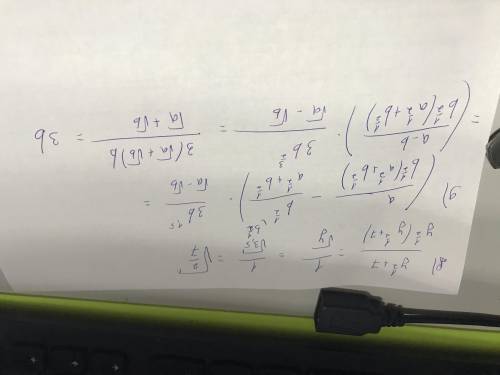 8) (y^{1/2} + 7) / (y^{1/2}(y^{1/2} + 7)) = 1/√y = 1/√3,5 = √(2/7)
9) (a / (b^{1/2}(a^{1/2} + b^{1/2})) − b^{1/2} / (a^{1/2} + b^{1/2})) · 3b^{1,5} / (√a − √b) =
= ((a − b) / (b^{1/2}(a^{1/2} + b^{1/2}))) · 3b^{3/2} / (√a − √b) = 3(√a + √b)b / (√a + √b) = 3b